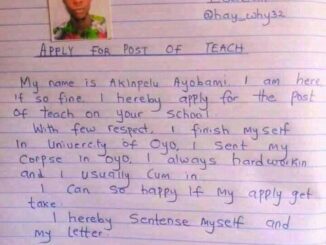 @hay_why32
APPLY FOR POST OF TEACH
My name is Akinpelu Ayobami. I am here
if so fine. I hereby apply for the post
of teach on your school.
With few respect. I finish myself
In Univercity of Oyo. I sent my
corpse in Oyo, I always hardworkin
and I usually Cum in.
I Can so happy If my apply get
take.
I hereby Sentense Myself and
my letter.